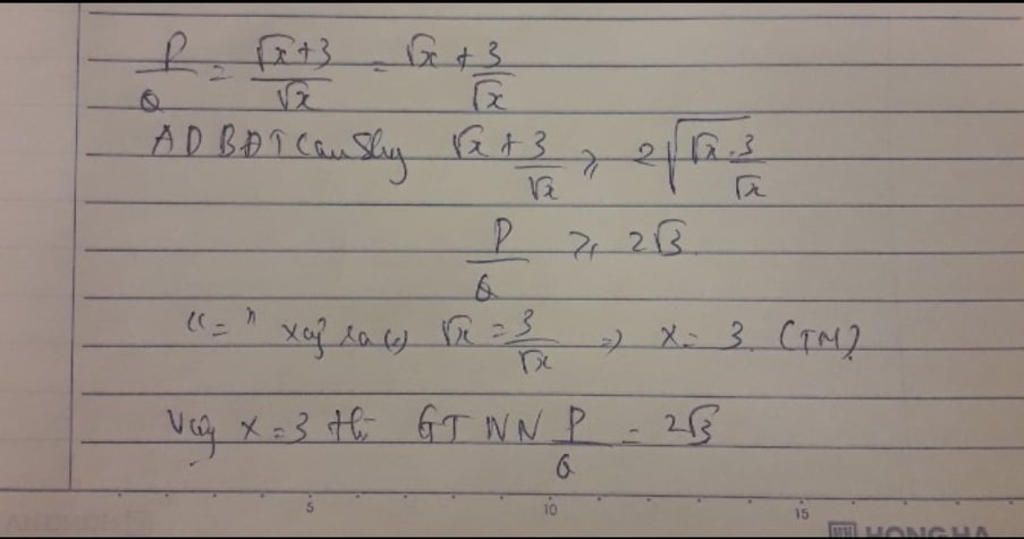 P/Q = (√x+3)/√x = √x + 3/√x
ADBĐT Caushy √x + 3/√x ≥ 2√(√x.3/√x)
P/Q ≥ 2√3
"=" xảy ra (=) √x = 3/√x => x = 3 (TM)
Vậy x=3 thì GTNN P/Q = 2√3
5 10 15
HONG HA